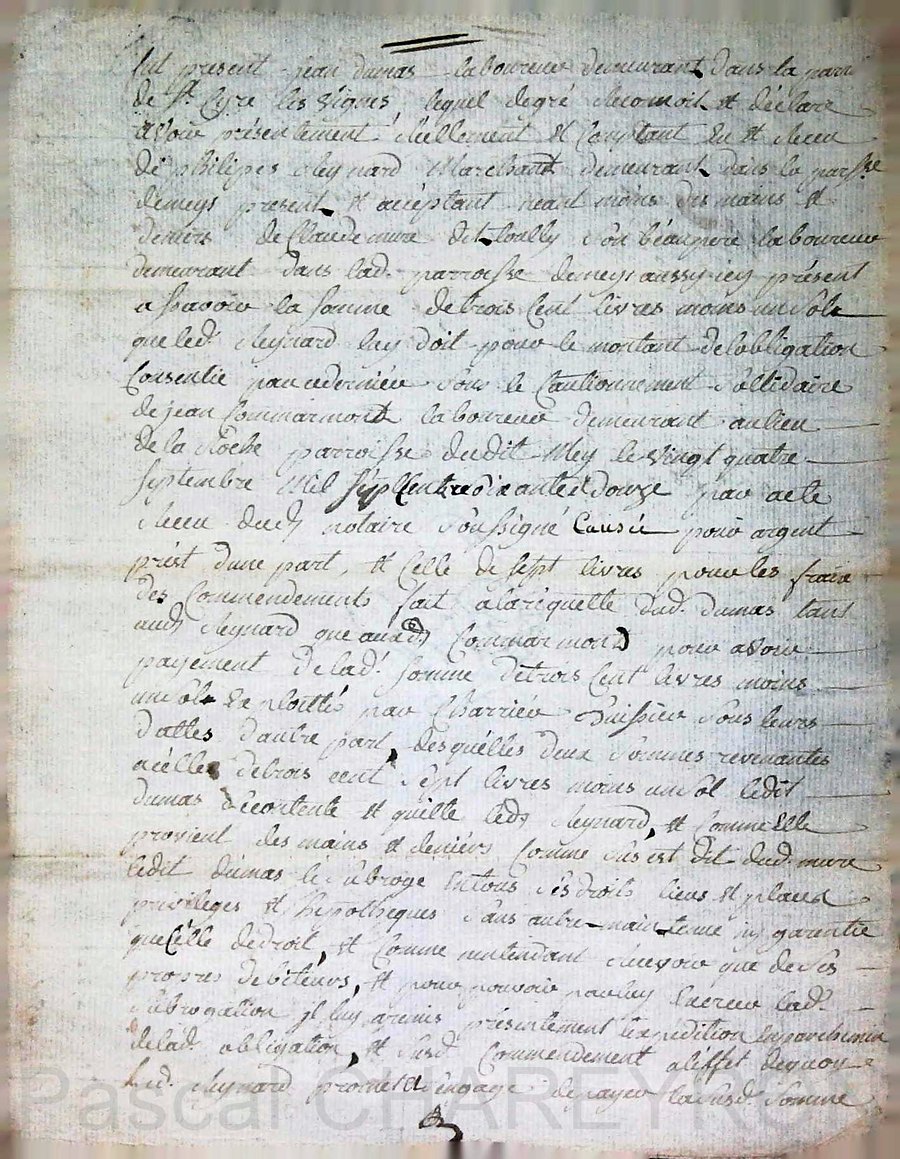 fut present jean dumas laboureur demeurant dans la parr
de St. Cyre les vignes, lequel de gré reconnoit et déclare
avoir présentement réellement et comptant eu et receu
de philipes Reynard Marchand demeurant dans la parsse
de meys present et acceptant neant moins des mains et
deniers de Claude mure dit Loully son beaupere laboureur
demeurant dans lad. parroisse de meys aussy icy présent
assavoir la somme de trois Cent livres moins un sols
que led. Reynard luy doit pour le montant de lobligation
Consentie par ce dernier sous le Cautionnement sollidaire
de jean Commarmont laboureur demeurant au lieu
de la Roche parroisse dudit Mey le vingt quatre
septembre Mil sept Cent soixante et douze par acte
Receu dud. notaire soussigné Causée pour argent
prest d'une part, et Celle de sept livres pour les frais
des Commendements fait a la requette dud. dumas tant
aud. Reynard que aud. Commarmond pour avoir
payement de lad. somme de trois Cent livres moins
un sols Exploittés par Charrier huissier sous leurs
dattes d'autre part, desquélles deux sommes revenantes
a célle de trois cent sept livres moins un sol ledit
dumas se contente et quitte led. Reynard, et Comme Elle
provient des mains et deniérs Comme s'est dit dud. mure
ledit dumas le subroge En tous ses droits lieux et places
privileges et hipotheques sans autre maintenue ny garentie
que célle de droit, et Comme nentendant recevoir que de ses
propres debiteurs, et pour pouvoir par luy lad.
subrogation jl luy a remis présentement lexpédition en parchemin
de lad. obligation, et susd. Commendement a l'effet de quoy
Led. Reynard promet et s'engage de payer la susd. somme
Pascal CHAREYRON